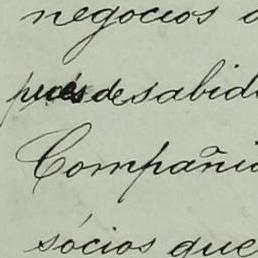 negocios
pués de sabid
Compañi
sócios que